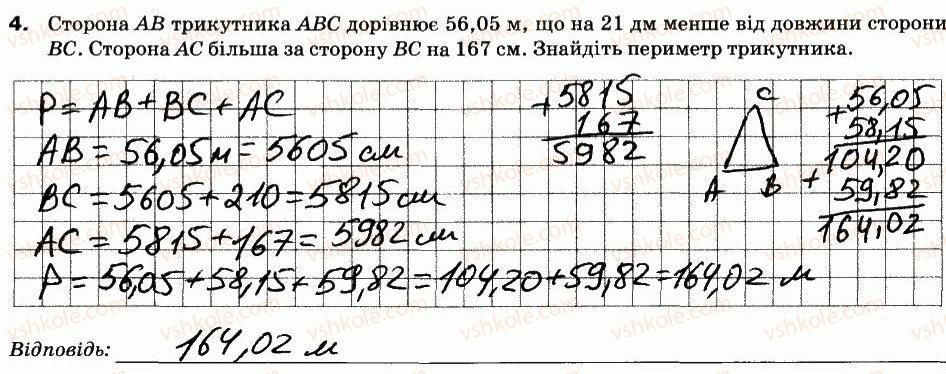 4. Сторона AB трикутника ABC дорівнює 56,05 м, що на 21 дм менше від довжини сторони
BC. Сторона AC більша за сторону BC на 167 см. Знайдіть периметр трикутника.
P = AB + BC + AC
AB = 56,05 м = 5605 см
BC = 5605 + 210 = 5815 см
AC = 5815 + 167 = 5982 см
P = 56,05 + 58,15 + 59,82 = 104,20 + 59,82 = 164,02 м
+ 5815
167
5982
C
A B
+ 56,05
58,15
104,20
+ 59,82
164,02
Відповідь: 164,02 м
vshkole.com